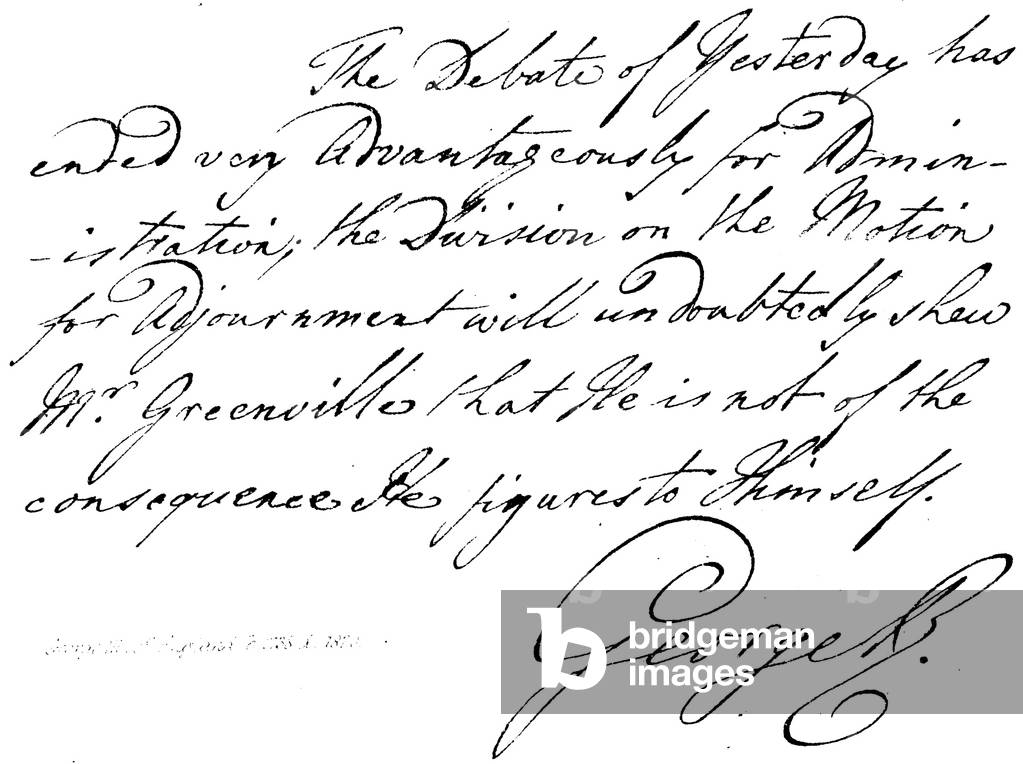 The Debate of Yesterday has
ended very Advantageously for Admin-
-istration; the Division on the Motion
for Adjournment will undoubtedly shew
Mr. Greenville that He is not of the
consequence He figures to Himself.
George R.
bridgeman
images